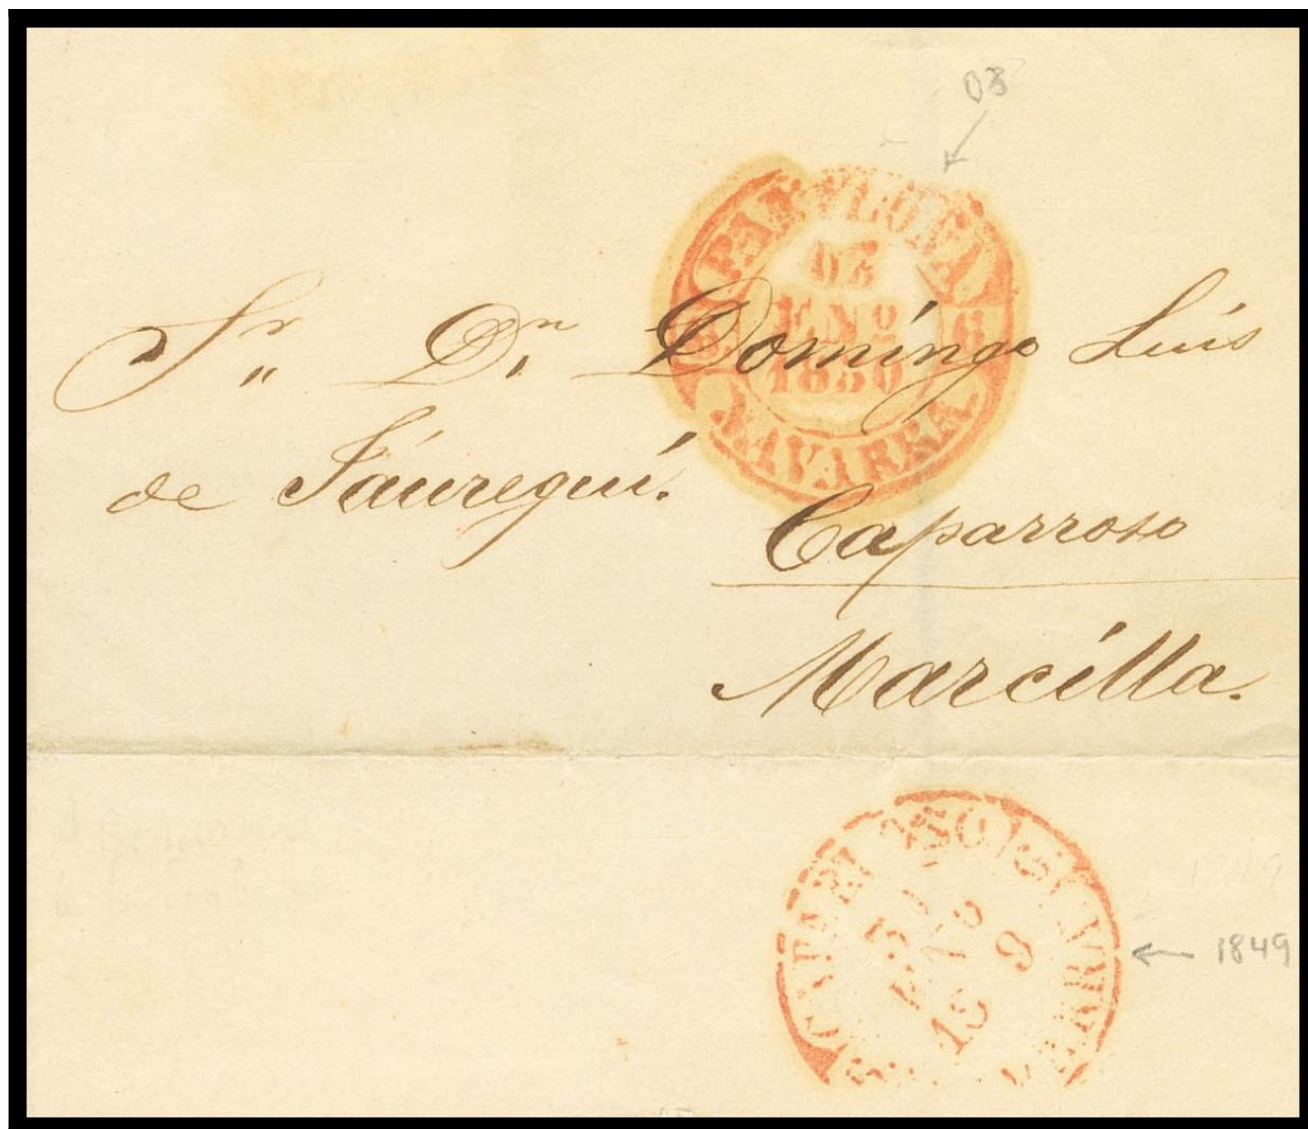 03
PAMPLONA
03
ENº
1850
6
NAVARRA.
Sr. Dn. Domingo Luis
de Jáuregui.
Caparroso
Marcilla.
1849